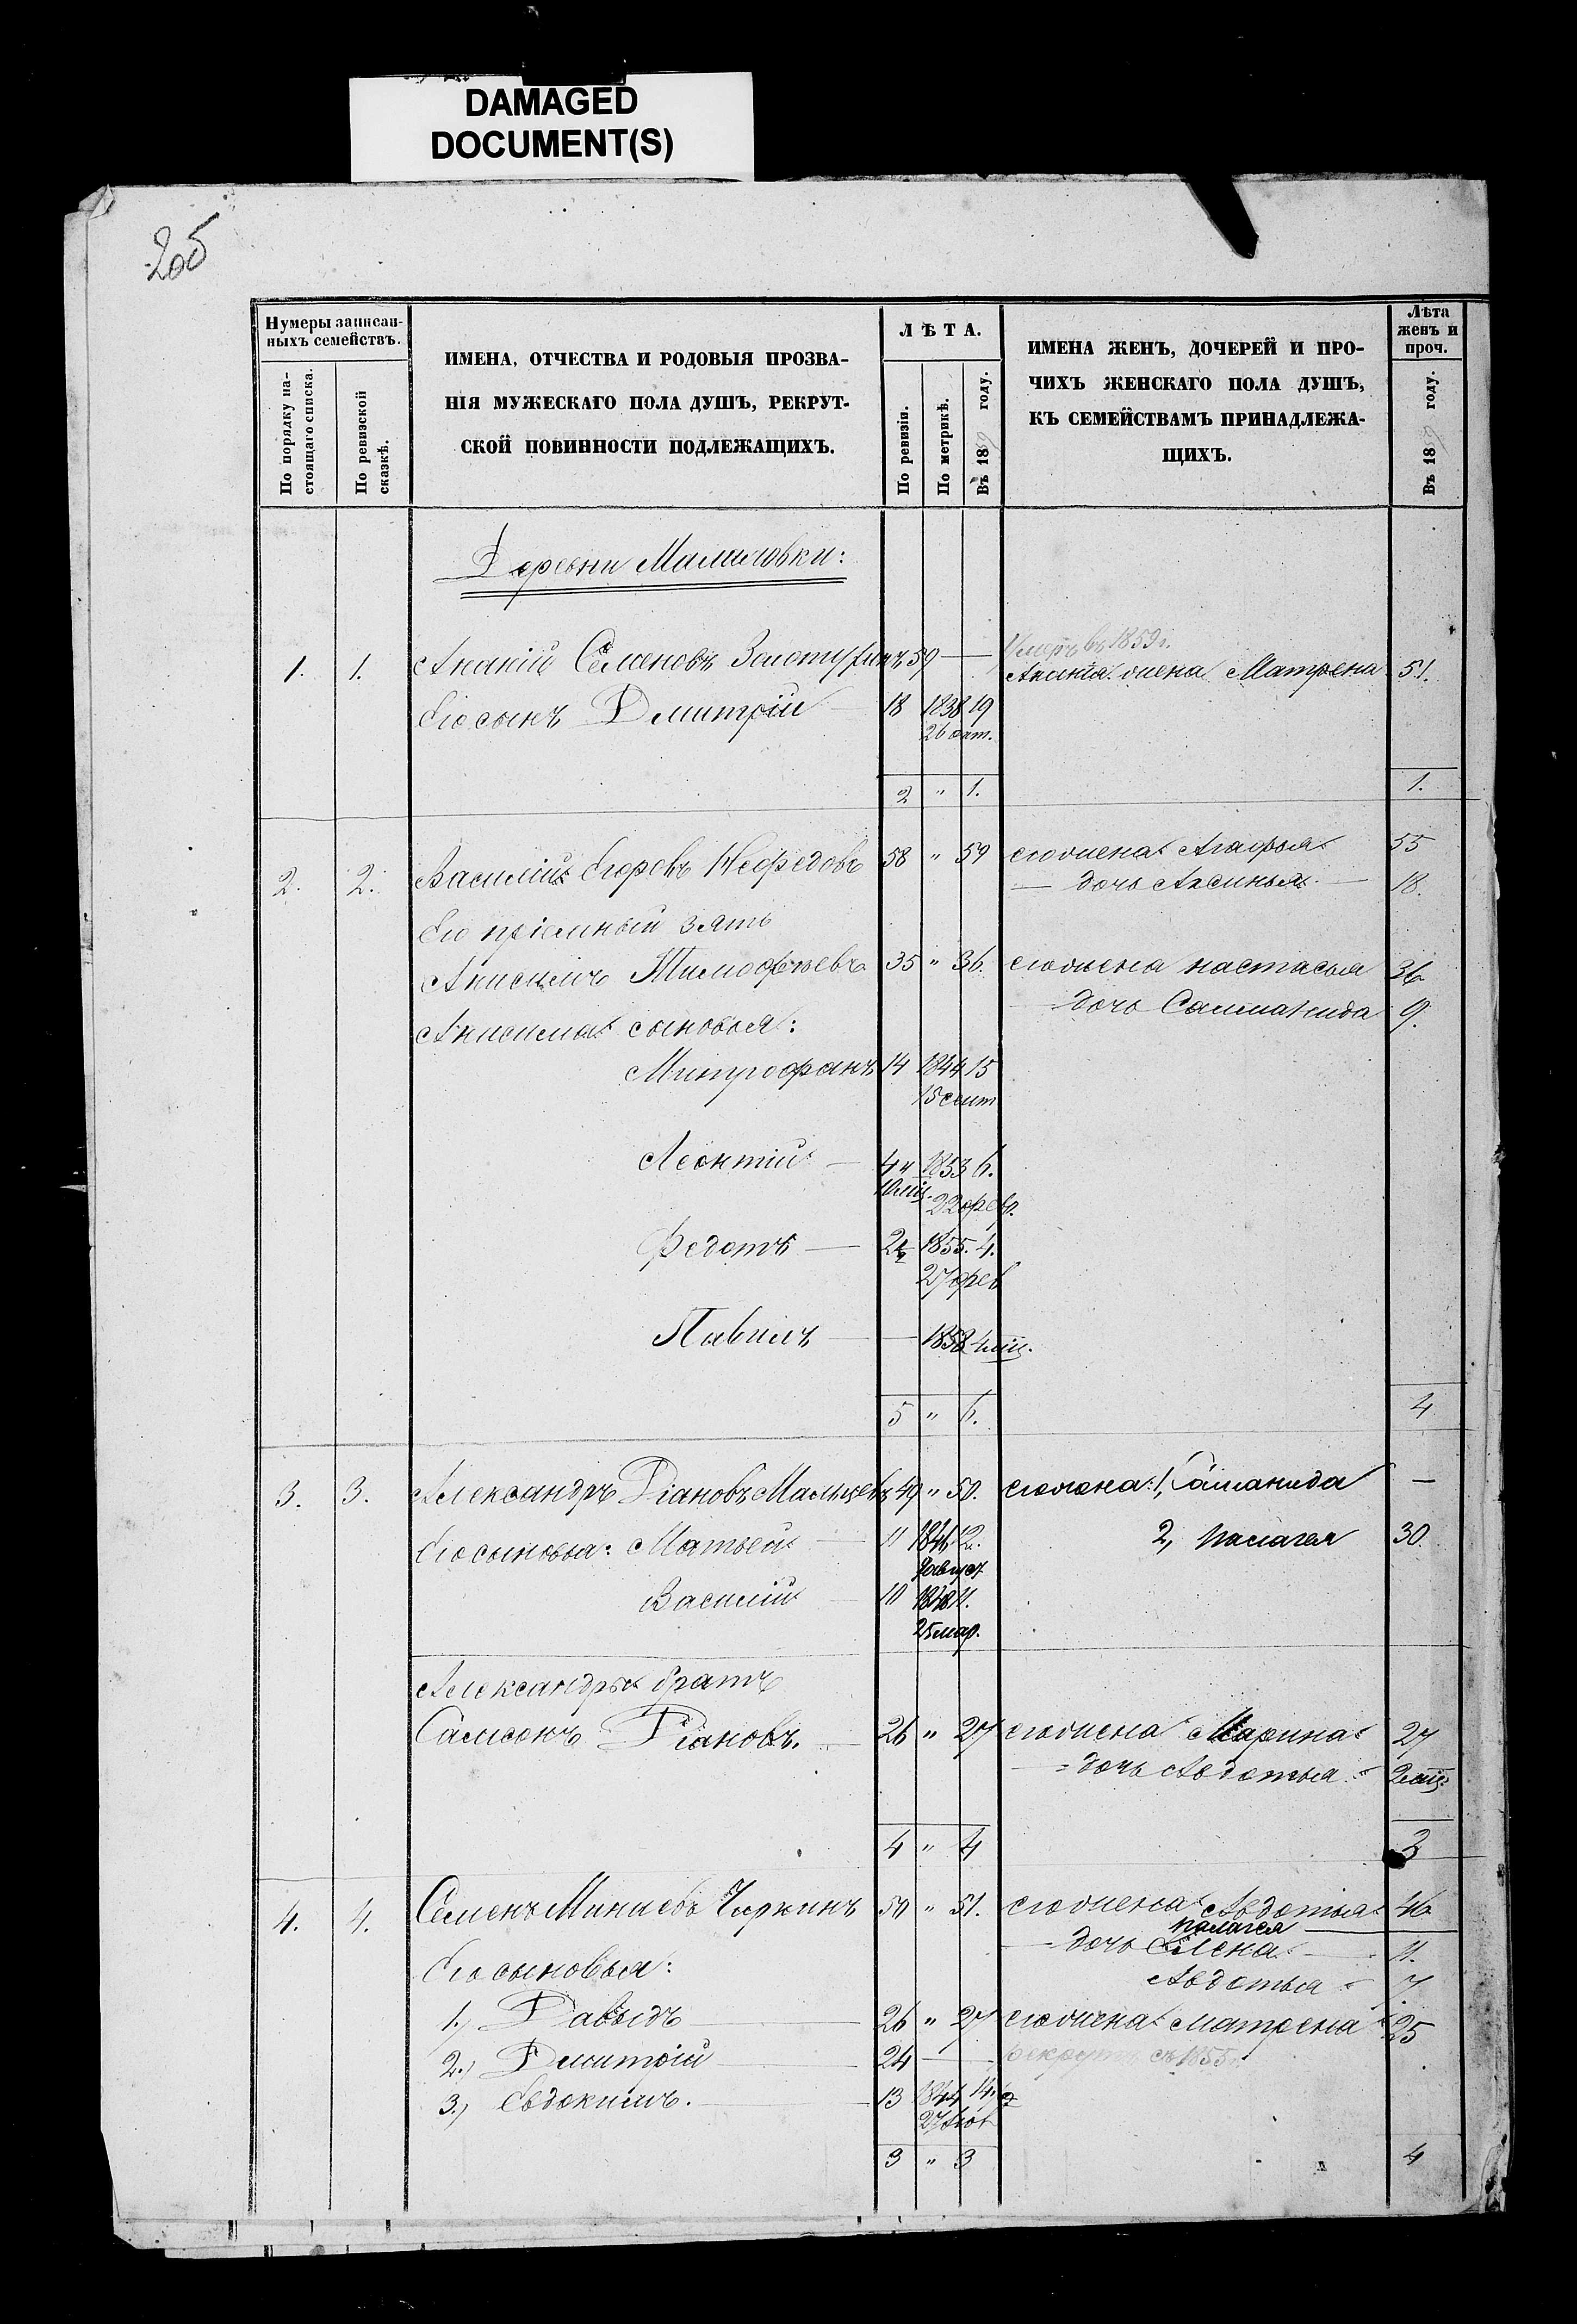 DAMAGED
DOCUMENT(S)
205
Нумеры записан-
ныхъ семействъ.
По порядку на-
стоящаго списка.
По ревизской
сказкѣ.
ИМЕНА, ОТЧЕСТВА И РОДОВЫЯ ПРОЗВА-
НІЯ МУЖЕСКАГО ПОЛА ДУШЪ, РЕКРУТ-
СКОЙ ПОВИННОСТИ ПОДЛЕЖАЩИХЪ.
ЛѢТА.
По ревизіи.
По метрикѣ.
Въ 1859 году.
ИМЕНА ЖЕНЪ, ДОЧЕРЕЙ И ПРО-
ЧИХЪ ЖЕНСКАГО ПОЛА ДУШЪ,
КЪ СЕМЕЙСТВАМЪ ПРИНАДЛЕЖА-
ЩИХЪ.
Лѣта
женъ и
проч.
Въ 1859 году.
Деревни
Умеръ въ 1859 г.
1. 1. Ананій Семеновъ 59 — Ананія жена Матрена 51.
Его сынъ Дмитрій — 18 1838 19
26 окт.
2 " 1. 1.
2. 2. Василій Егоровъ Нефедовъ 58 " 59 его жена Агафья 55
— дочь Аксинья — 18.
Его пріемный зять
Анисимъ Тимофѣевъ 35 " 36. его жена Настасья 36
дочь Саламанида 9.
Анисима сыновья:
Митрофанъ 14 1844 15
15 сент
Леонтій — 4 и 1853 6.
10 мѣц. 22 февр.
Федотъ — 2½ 1855. 4.
27 фев
Павелъ — — 1858 4 мѣц.
5 " 6. 4
3. 3. Александръ Діановъ Мальцевъ 49 " 50. его жена: 1, Саманида —
Его сыновья: Матвей — 11 1846 12. 2, Палагея 30
9 август
Василій — 10 1848 11.
25 мар.
Александра братъ
Самсонъ Діановъ. — 26 " 27 его жена Марина 27
— дочь Авдотья 2 мѣц.
4 " 4 3
4. 4. Семенъ Минаевъ Чиркинъ 50 " 51. его жена Авдотья 46
Палагея
— дочь Елена — 11.
Его сыновья:
Авдотья 7.
1.) Давыдъ — 26 " 27 его жена Матрена 25
2.) Дмитрій — 24 — рекрутъ съ 1855 г.
3.) Евдокимъ. — 13 1844 14.
3 " 3 4